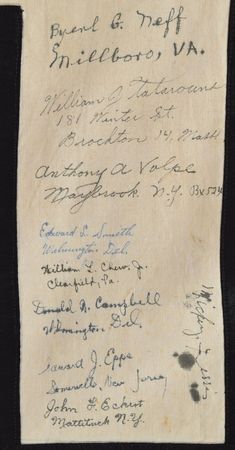 Byerl G. Neff
Millboro, VA.
William J
181 Winter St.
Brockton 14, Mass
Anthony A Volpe
Maybrook N.Y. Bx 524
Edward L. Smith
Wilmington Del.
William L. Chew, Jr.
Clearfield, Pa.
Donald N. Campbell
Wilmington Del.
Edward J. Epps
Somerville, New Jersey
John F. Eckert
Mattituck N.Y.